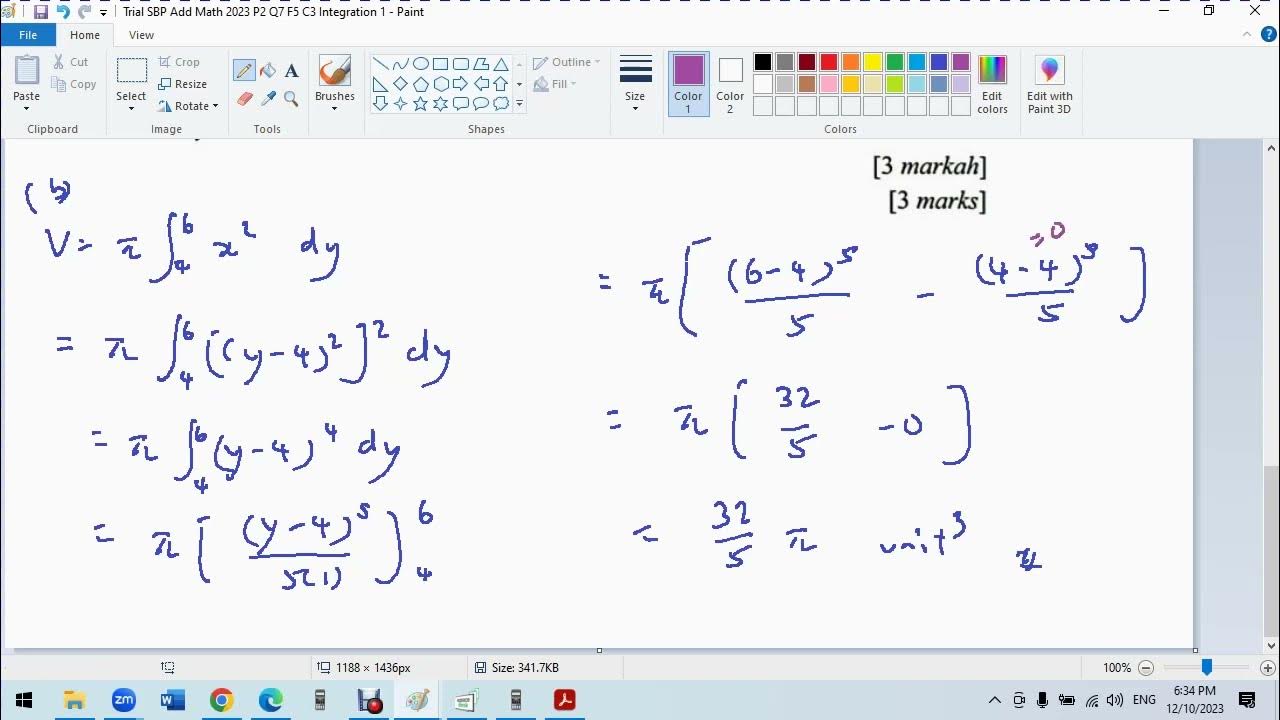 Trial SBP Add Math 2023 P2 Q7 F5 C3 Integration 1 - Paint
File Home View
Paste
Cut
Copy
Clipboard
Select
Crop
Resize
Rotate
Image
A
Tools
Brushes
Outline
Fill
Shapes
Size
Color 1
Color 2
Edit colors
Colors
Edit with Paint 3D
[3 markah]
[3 marks]
(b)
V = π ∫₄⁶ x² dy
= π ∫₄⁶ [(y-4)²]² dy
= π ∫₄⁶ (y-4)⁴ dy
= π [ (y-4)⁵ / 5(1) ]₄⁶
= π [ (6-4)⁵ / 5 - (4-4)⁵ / 5 ]
=0
= π [ 32/5 - 0 ]
= 32/5 π unit³
1188 × 1436px
Size: 341.7KB
100%
zm
W
ENG
6:34 PM
12/10/2023